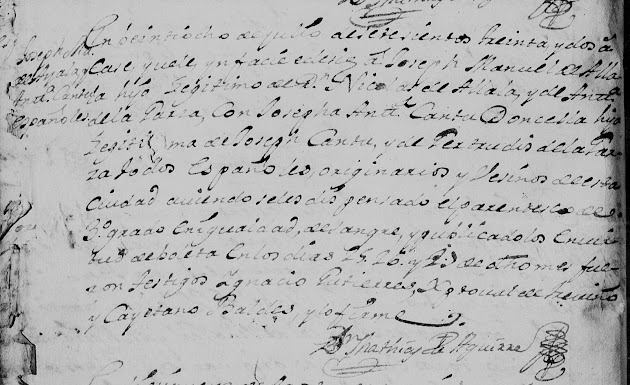 Joseph Ma.
de Ayala y
Anta. Cantu
españoles
En veintiocho de Julio de setesientos treinta y dos a.
Case y vele yn facie eclesie a Joseph Manuel de Aila
hijo Legitimo de Dn. Nicolas de Aiala, y de Anta.
de la Garza, con Josepha Anta. Cantu Doncella hija
Legitima de Joseph Cantu, y de Gertrudis de la Gar-
za todos Españoles, originarios y Vesinos de esta
Ciudad aviendoseles dispensado el parentesco de
3o. grado en igualdad, de sangre, y publicadolos en vir-
tud de boleta en los dias y 25 de dho mes fue-
ron testigos Ignacio Gutierres, Xptoval de treviño
y Cayetano Baldes, y lo firme
Br. Mathias de Aguirre